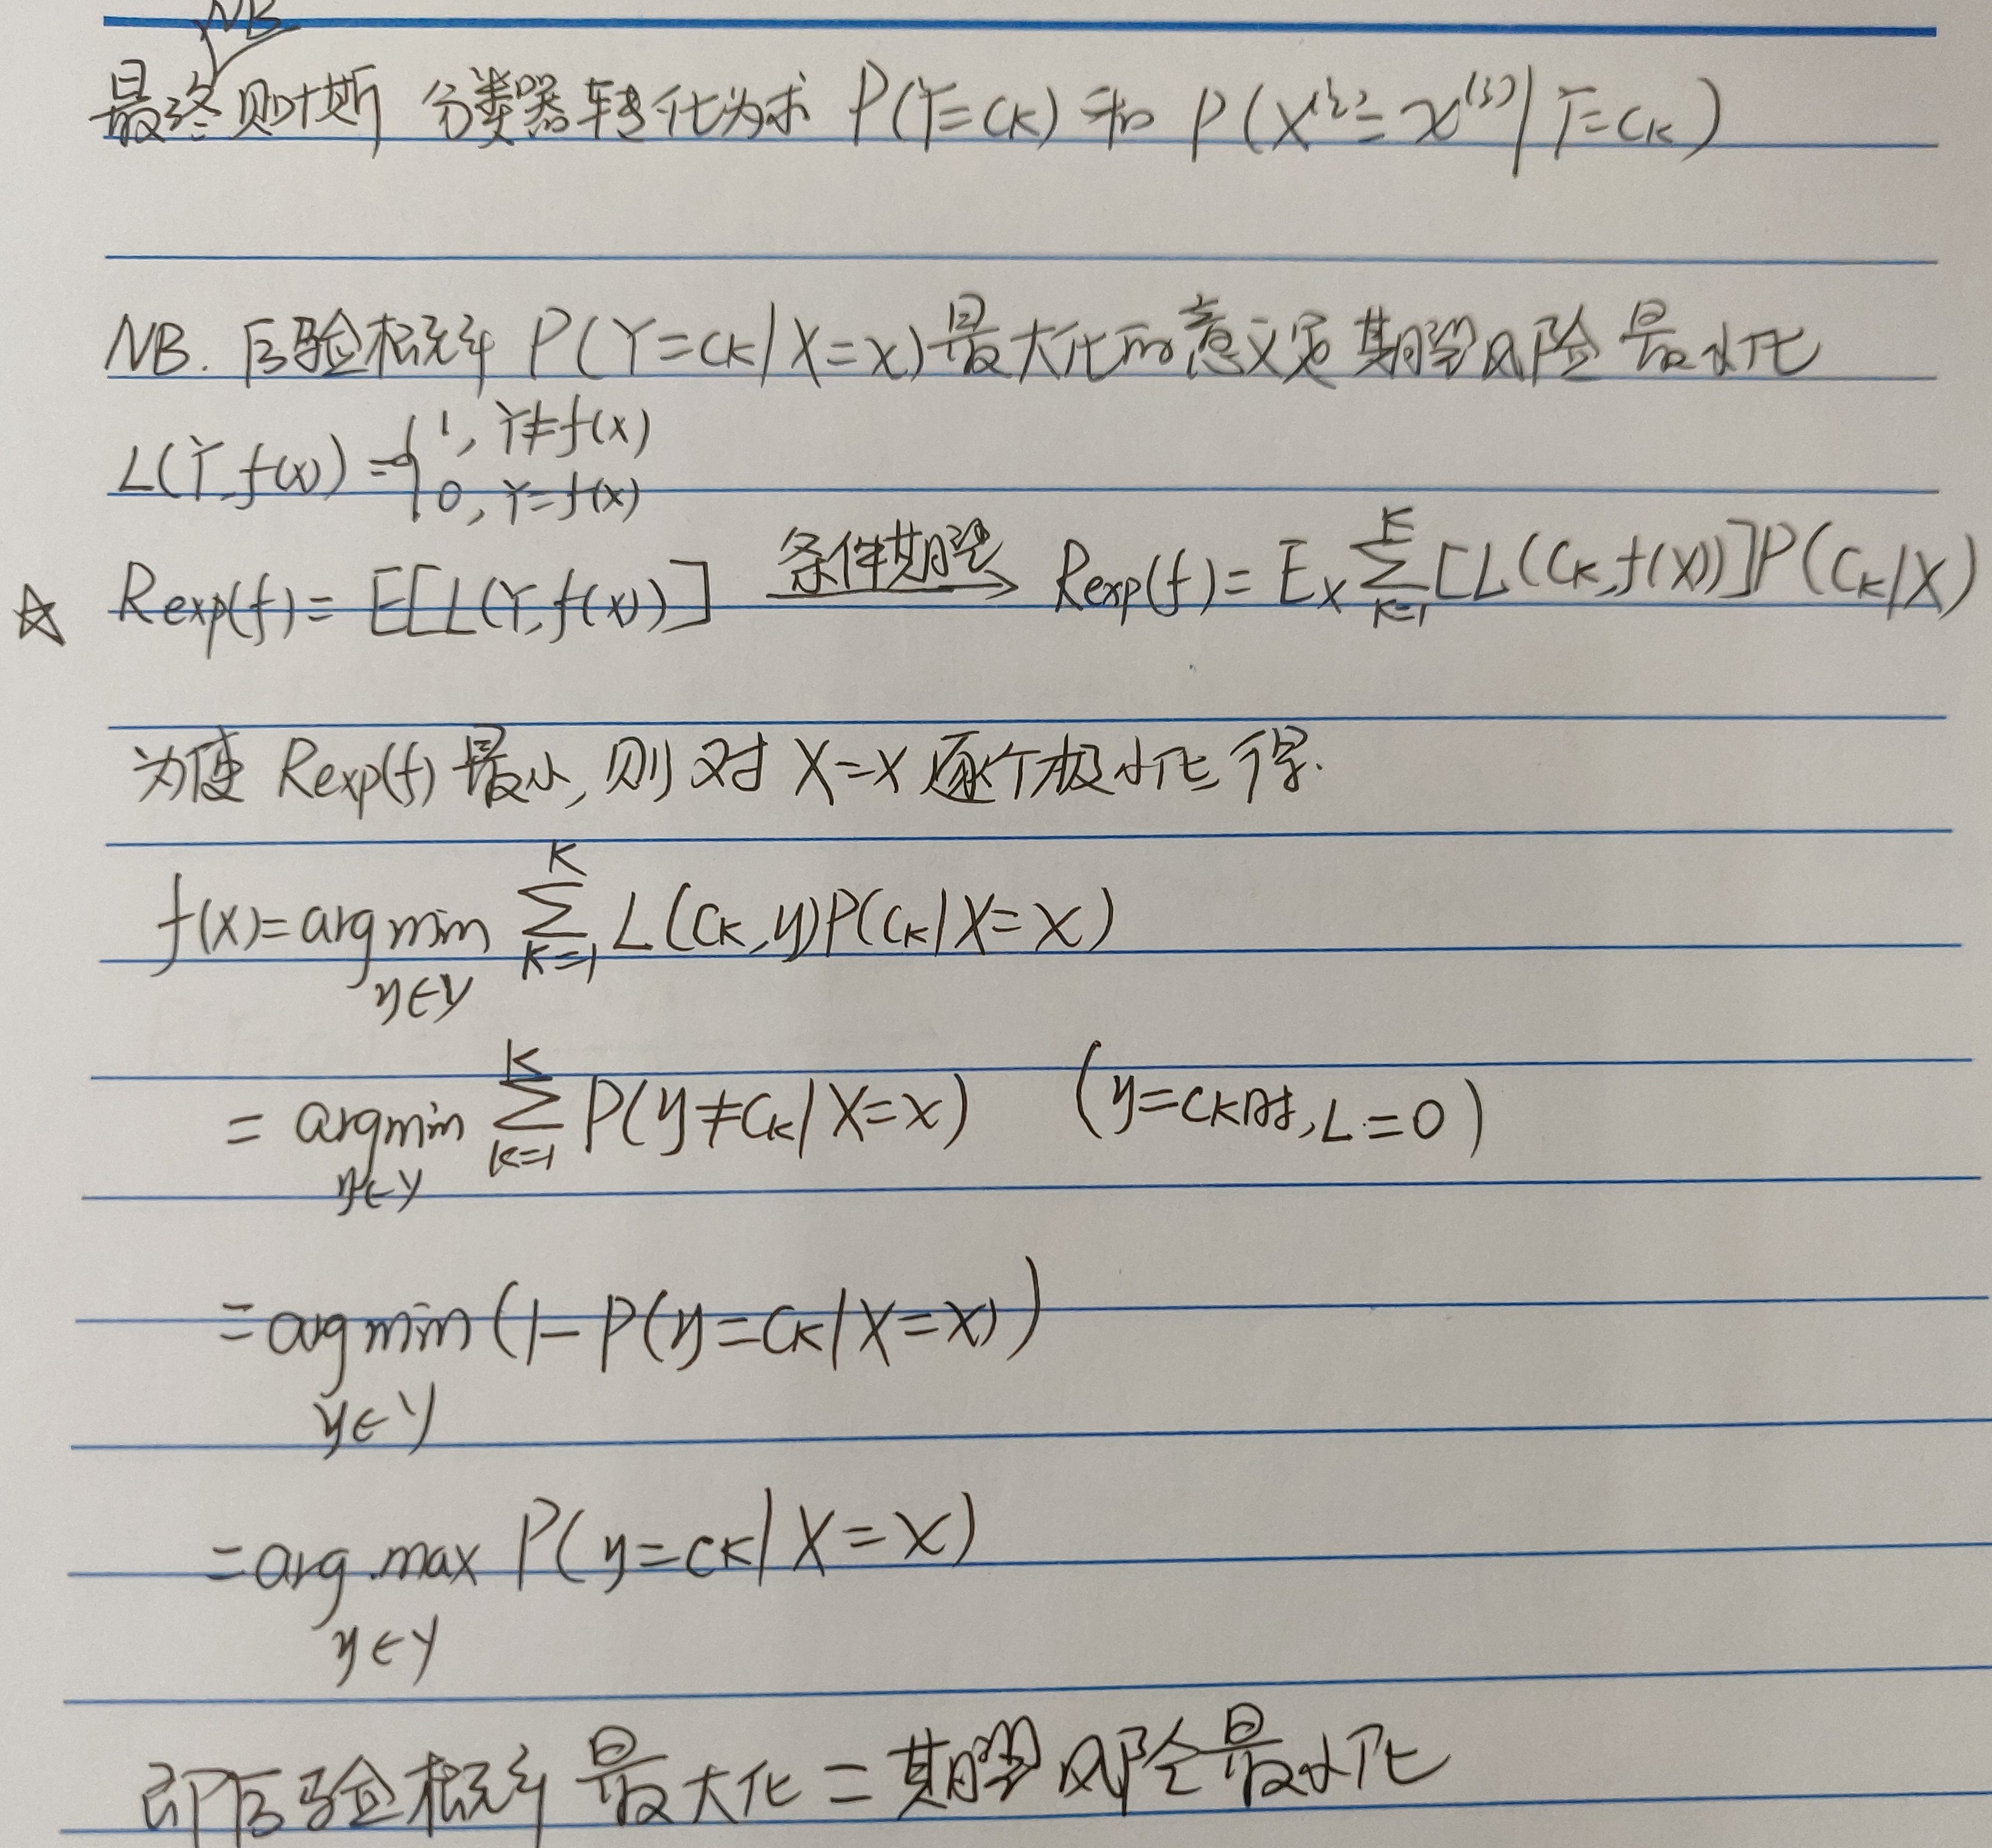 NB
最终贝叶斯 分类器转化为求 P(Y=CK) 和 P(X⁽ʲ⁾=x⁽ʲ⁾|Y=CK)
NB. 后验概率 P(Y=CK|X=x)最大化的意义是期望风险最小化
L(Y,f(x))={1, Y≠f(x)
0, Y=f(x)
☆ Rexp(f)=E[L(Y,f(x))] 条件期望→ Rexp(f)=E_X ∑_{K=1}^{K}[L(CK,f(X))]P(CK|X)
为使 Rexp(f)最小,则对 X=x 逐个极小化得.
f(x)=arg min_{y∈Y} ∑_{K=1}^{K} L(CK,y)P(CK|X=x)
=argmin_{y∈Y} ∑_{k=1}^{K} P(y≠CK|X=x) (y=CK时,L=0)
=arg min_{y∈Y} (1-P(y=CK|X=x))
=arg.max_{y∈Y} P(y=CK|X=x)
即后验概率最大化=期望风险最小化